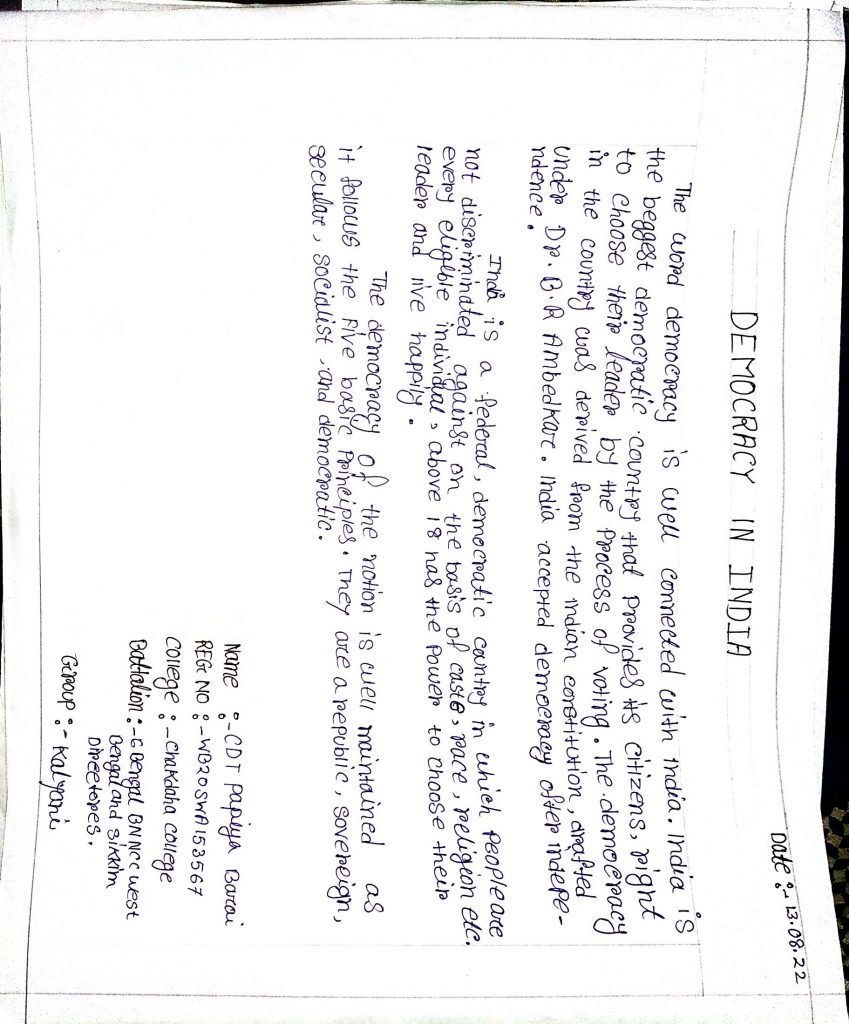 Date :- 13.08.22
DEMOCRACY IN INDIA
The word democracy is well connected with India. India is
the beggest democratic country that provides its citizens, right
to choose their leader by the process of voting. The democracy
in the country was derived from the indian constitution, drafted
under Dr. B.R Ambedkar. India accepted democracy after indepe-
ndence.
India is a federal, democratic country in which people are
not discriminated against on the basis of caste, race, religion etc.
every eligible individual, above 18 has the power to choose their
leader and live happily.
The democracy of the notion is well maintained as
it follows the five basic principles. They are a republic, sovereign,
secular, socialist, and democratic.
Name :- CDT Papiya Barai
REG NO :- WB20SWA153567
College :- Chakdaha College
Battalion :- 6 Bengal BN NCC West
Bengal and Sikkim
Directores.
Group :- Kalyani